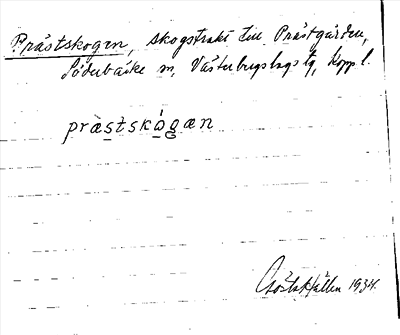 Prästskogen, skogstrakt till Prästgården,
Söderbärke sn, Västerbergslags tg, Kopp. l.
prästskógan
Gösta Källén 1934.